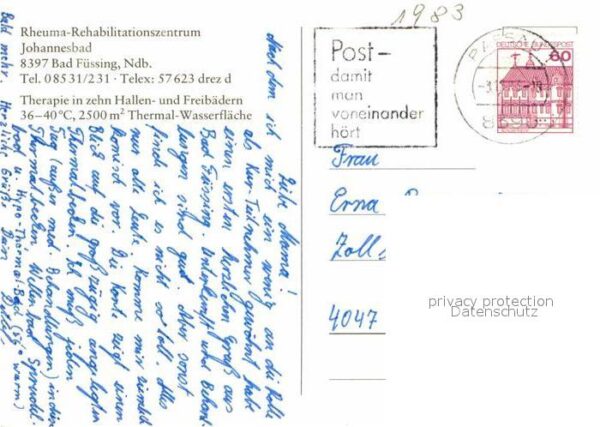 1983
Rheuma-Rehabilitationszentrum
Johannesbad
8397 Bad Füssing, Ndb.
Tel. 08531/231 · Telex: 57623 drez d
Therapie in zehn Hallen- und Freibädern
36–40°C, 2500 m² Thermal-Wasserfläche
Post –
damit
man
voneinander
hört
PASSAU
DEUTSCHE BUNDESPOST
60
Frau
Erna
Zoll
4047
privacy protection
Datenschutz
Liebe Mama!
Nach dem ich mich ein wenig an die Rolle
als Kur-Teilnehmer gewöhnt habe
einen ersten herzlichen Gruß aus
Bad Füssing. Unterkunft und Behand-
lungen sind gut. Aber sonst
finde ich es nicht so toll. Alles
nur alte Leute. Komme mir ziemlich
komisch vor. Die Karte zeigt einen
Blick auf die großzügig angelegten
Thermalbecken. Ich muß jeden
Tag (außer med. Behandlungen) in den
Thermalbecken, Wellenbad, Sprudel-
bad u. Hypo-Thermal-Bad
Bald mehr. Herzliche Grüße Dein